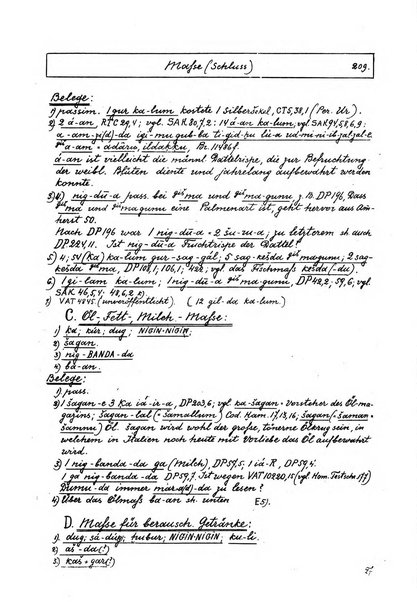 Maße (Schluss) 209.
Belege:
1) passim. 1 gur ka-lum kostete 1 Silbersikel, CT 5,38,1 (Per. Ur).
2) 2 á-an, RTC 29,4; vgl. SAK 80,7,2: 14 á-an ka-lum, vgl. SAK 94,58,6,9:
á-an ist vielleicht die männl. Dattelrispe, die zur Befruchtung
der weibl. Blüten diente und jahrelang aufbewahrt werden
konnte.
3)4) nig-dŭ-a pass. bei ᵍⁱˢma und ᵍⁱˢma-gunu, z.B. DP 196, Dass
ᵍⁱˢma und ᵍⁱˢmagunu eine Palmenart ist, geht hervor aus Am-
herst 50.
Nach DP 198 war 1 nig-dŭ-a = 2 šu-u-a; zu letzterem sh. auch
DP 224 II. Ist nig-dŭ-a Fruchtrispe der Dattel?
5) 4; 54 (Ka) ka-lum gur-sag-gál; 5 sag-kešda ᵍⁱˢmagunu; 2 sag-
kešda ᵍⁱˢma, DP 108,1; 106,1; 422; vgl. das Fischmaß kešda(-du).
6) 1 gi-lam ka-lum; 1 nig-dŭ-a ᵍⁱˢma-gunu, DP 42,2; 59,6; vgl.
SAK 46,5,4; 48,6,2
7) VAT 4845 (unveröffentlicht) (12 gil-da ka-lum.)
C. Öl-, Fett-, Milch-Maße:
1) ka; kúr; dug; NIGIN-NIGIN.
2) šagan.
3) nig-BANDA-da
4) ba-an.
Belege:
1) pass.
2) 1 šagan-e 3 Ka iá-ir-a, DP 203,6; vgl. ka-šagan = Vorsteher des Ölma-
gazins; šagan-lal (= šamallum) Cod. Ham. 17,13,16; šagan (= šaman =
šammu) Öl. šagan wird wohl der große, tönerne Ölkrug sein, in
welchem in Italien noch heute mit Vorliebe das Öl aufbewahrt
wird.
3) 1 nig-banda-da ga (Milch), DP 57,5; 1 iá-R, DP 59,4.
1 ga nig-banda-da DP 57,7. Ist wegen VAT 10220,15 (vgl. Hom.
Dumu-da immer mar-d(d)-da zu lesen?
4) Über das Ölmaß ba-an sh. unten E 5).
D. Maße für berausch. Getränke:
1) dug; sá-dúg; hubur; NIGIN-NIGIN; ku-li.
2) aš-da(!)
3) kas+gar(!)